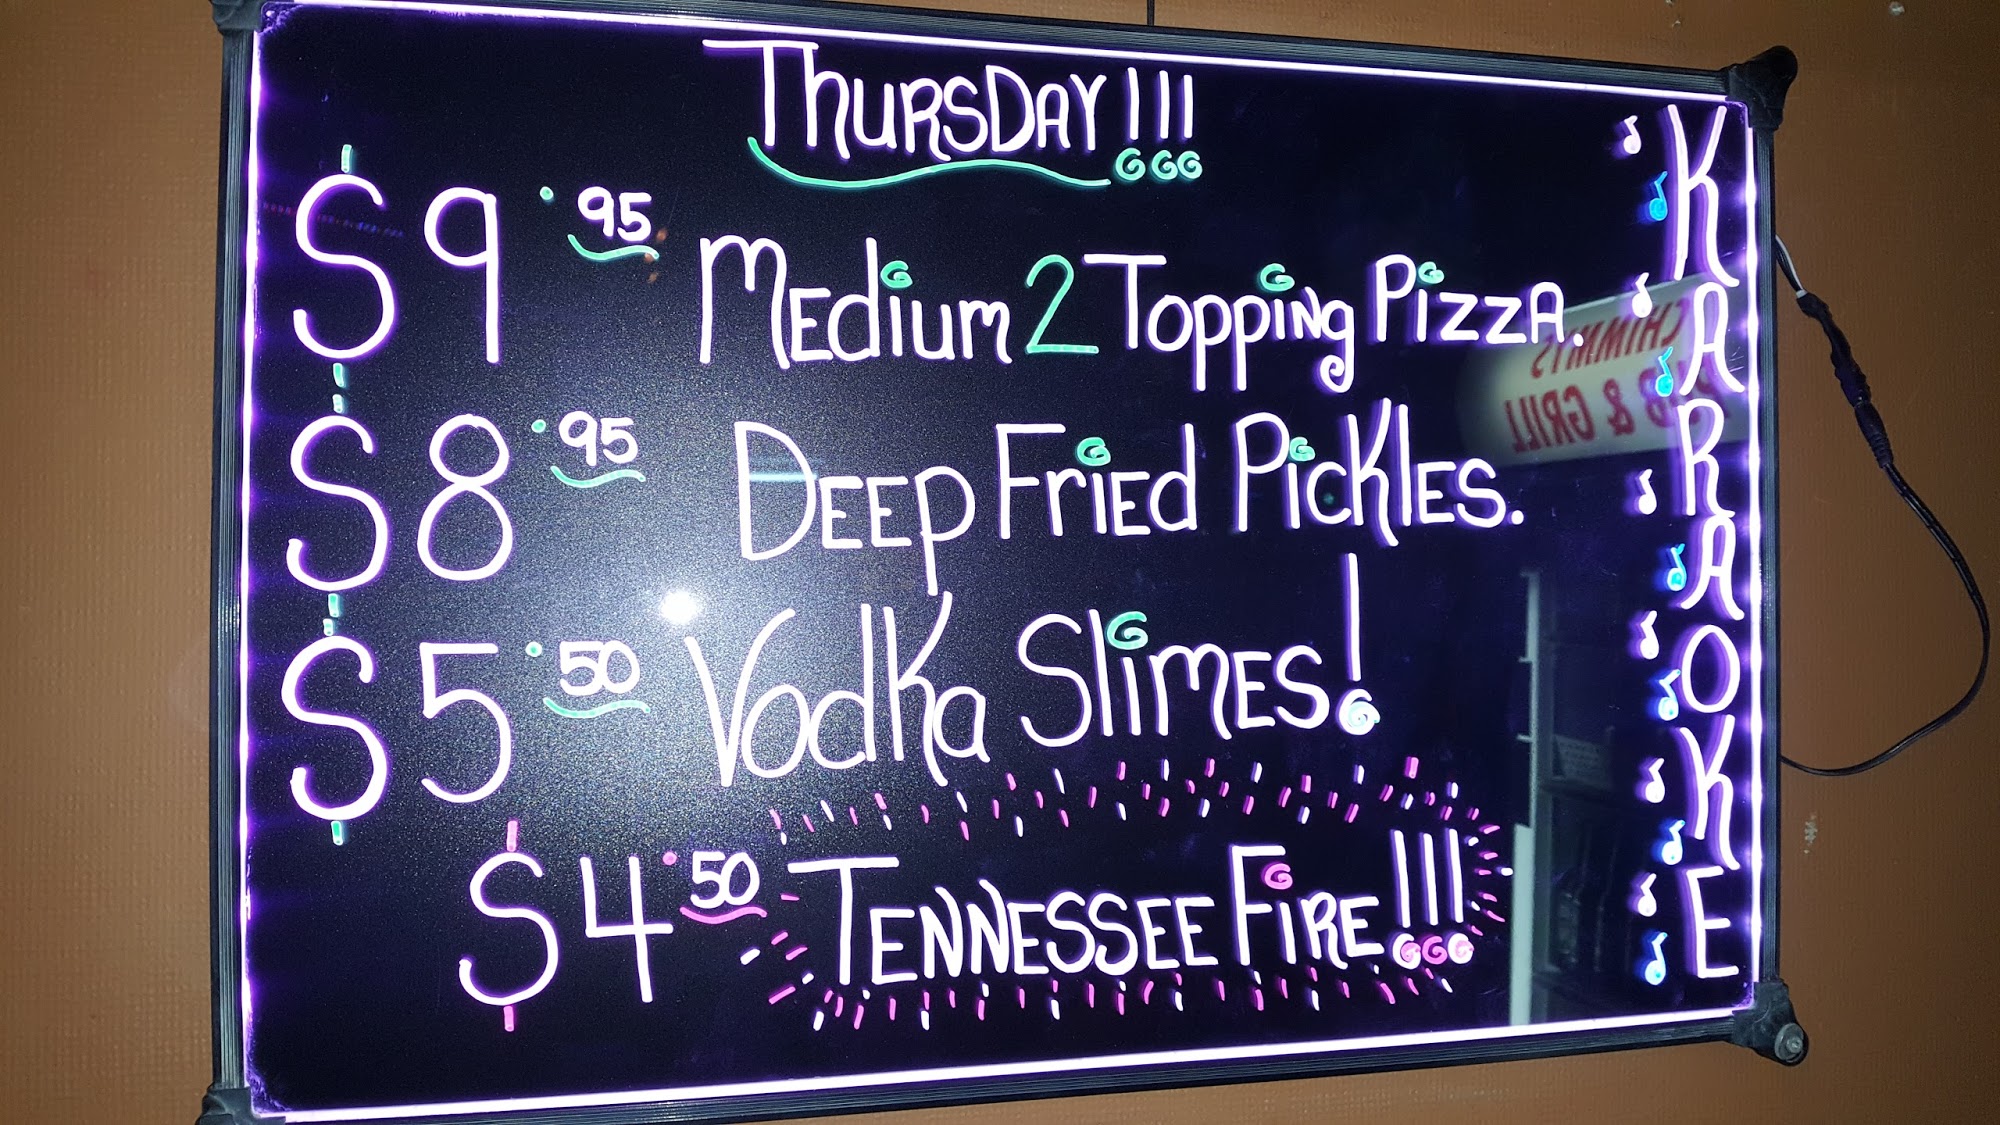 THURSDAY!!!
$9.95 MEDIUM 2 TOPPING PIZZA.
$8.95 DEEP FRIED PICKLES.
$5.50 VODKA SLIMES!
$4.50 TENNESSEE FIRE!!!
KARAOKE
CHIMMY'S
PUB & GRILL